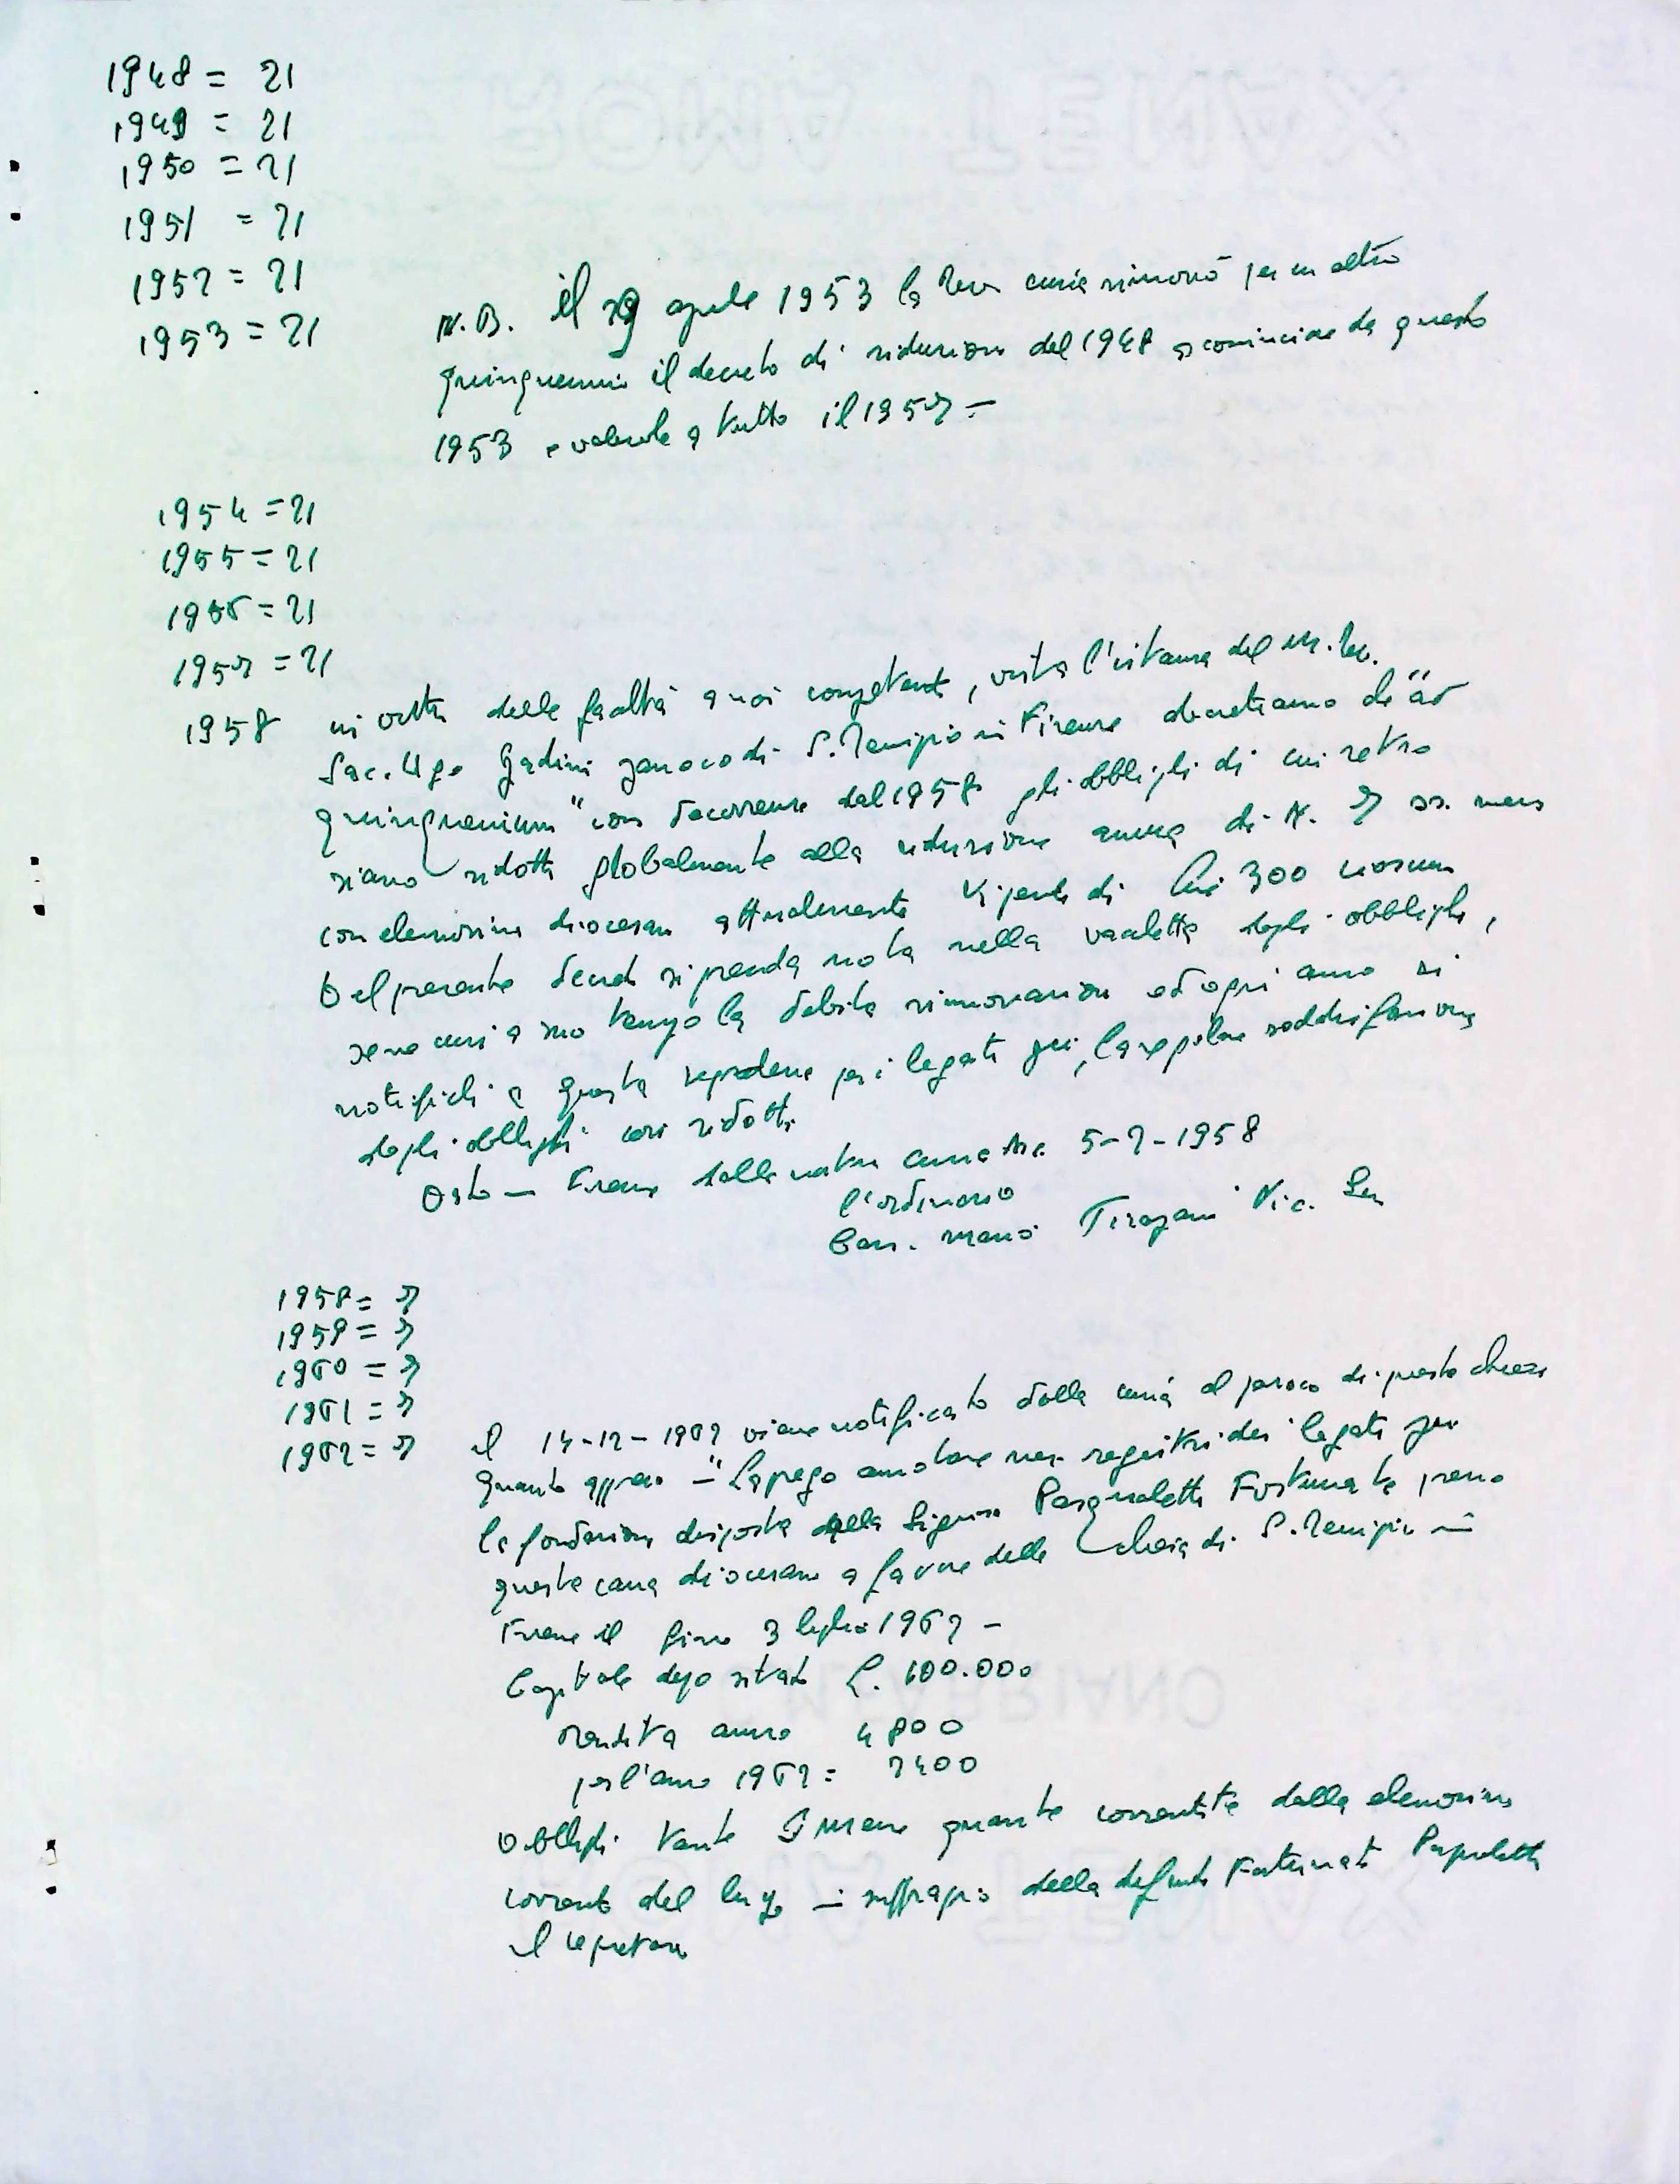 1948 = 21
1949 = 21
1950 = 21
1951 = 21
1952 = 21
1953 = 21
N.B. il 29 aprile 1953 la Rev. curia rinnovò per un altro
quinquennio il decreto di riduzione del 1948 a cominciare da questo
1953 e valevole a tutto il 1957 =
1954 = 21
1955 = 21
1956 = 21
1957 = 21
1958 in virtù delle facoltà a noi competenti, vista l'istanza del M. Rev.
Sac. Ugo parroco di S. Remigio in Firenze decretiamo che "ad
quinquennium" con decorrenza dal 1958 gli obblighi di cui retro
siano ridotti globalmente alla riduzione annua di N. 7 ss. messe
con elemosina diocesana attualmente vigente di Lire 300
Del presente decreto si prenda nota nella vacchetta degli obblighi,
se ne curi a suo tempo la debita rinnovazione ed ogni anno si
notifichi a questa per i legati pii, la regolare soddisfazione
degli obblighi così ridotti
Dato — Firenze dalla nostra curia 5-2-1958
l'ordinario
Can. Mario Tirapani Vic. Gen
1958 = 7
1959 = 7
1960 = 7
1961 = 7
1962 = 7
il 14-12-1962 viene notificato dalla curia al parroco di questa chiesa
quanto appresso — "La prego annotare nei registri dei legati pii
la fondazione disposta dalla Signora Pasqualetti Fortunata presso
questa cassa diocesana a favore della chiesa di S. Remigio in
Firenze il giorno 3 luglio 1962 —
Capitale depositato L. 100.000
rendita annua 4800
per l'anno 1962 = 2400
Obblighi tante S Messe quante consentite dalla elemosina
corrente del luogo in suffragio della defunta Fortunata Pasqualetti
il segretario